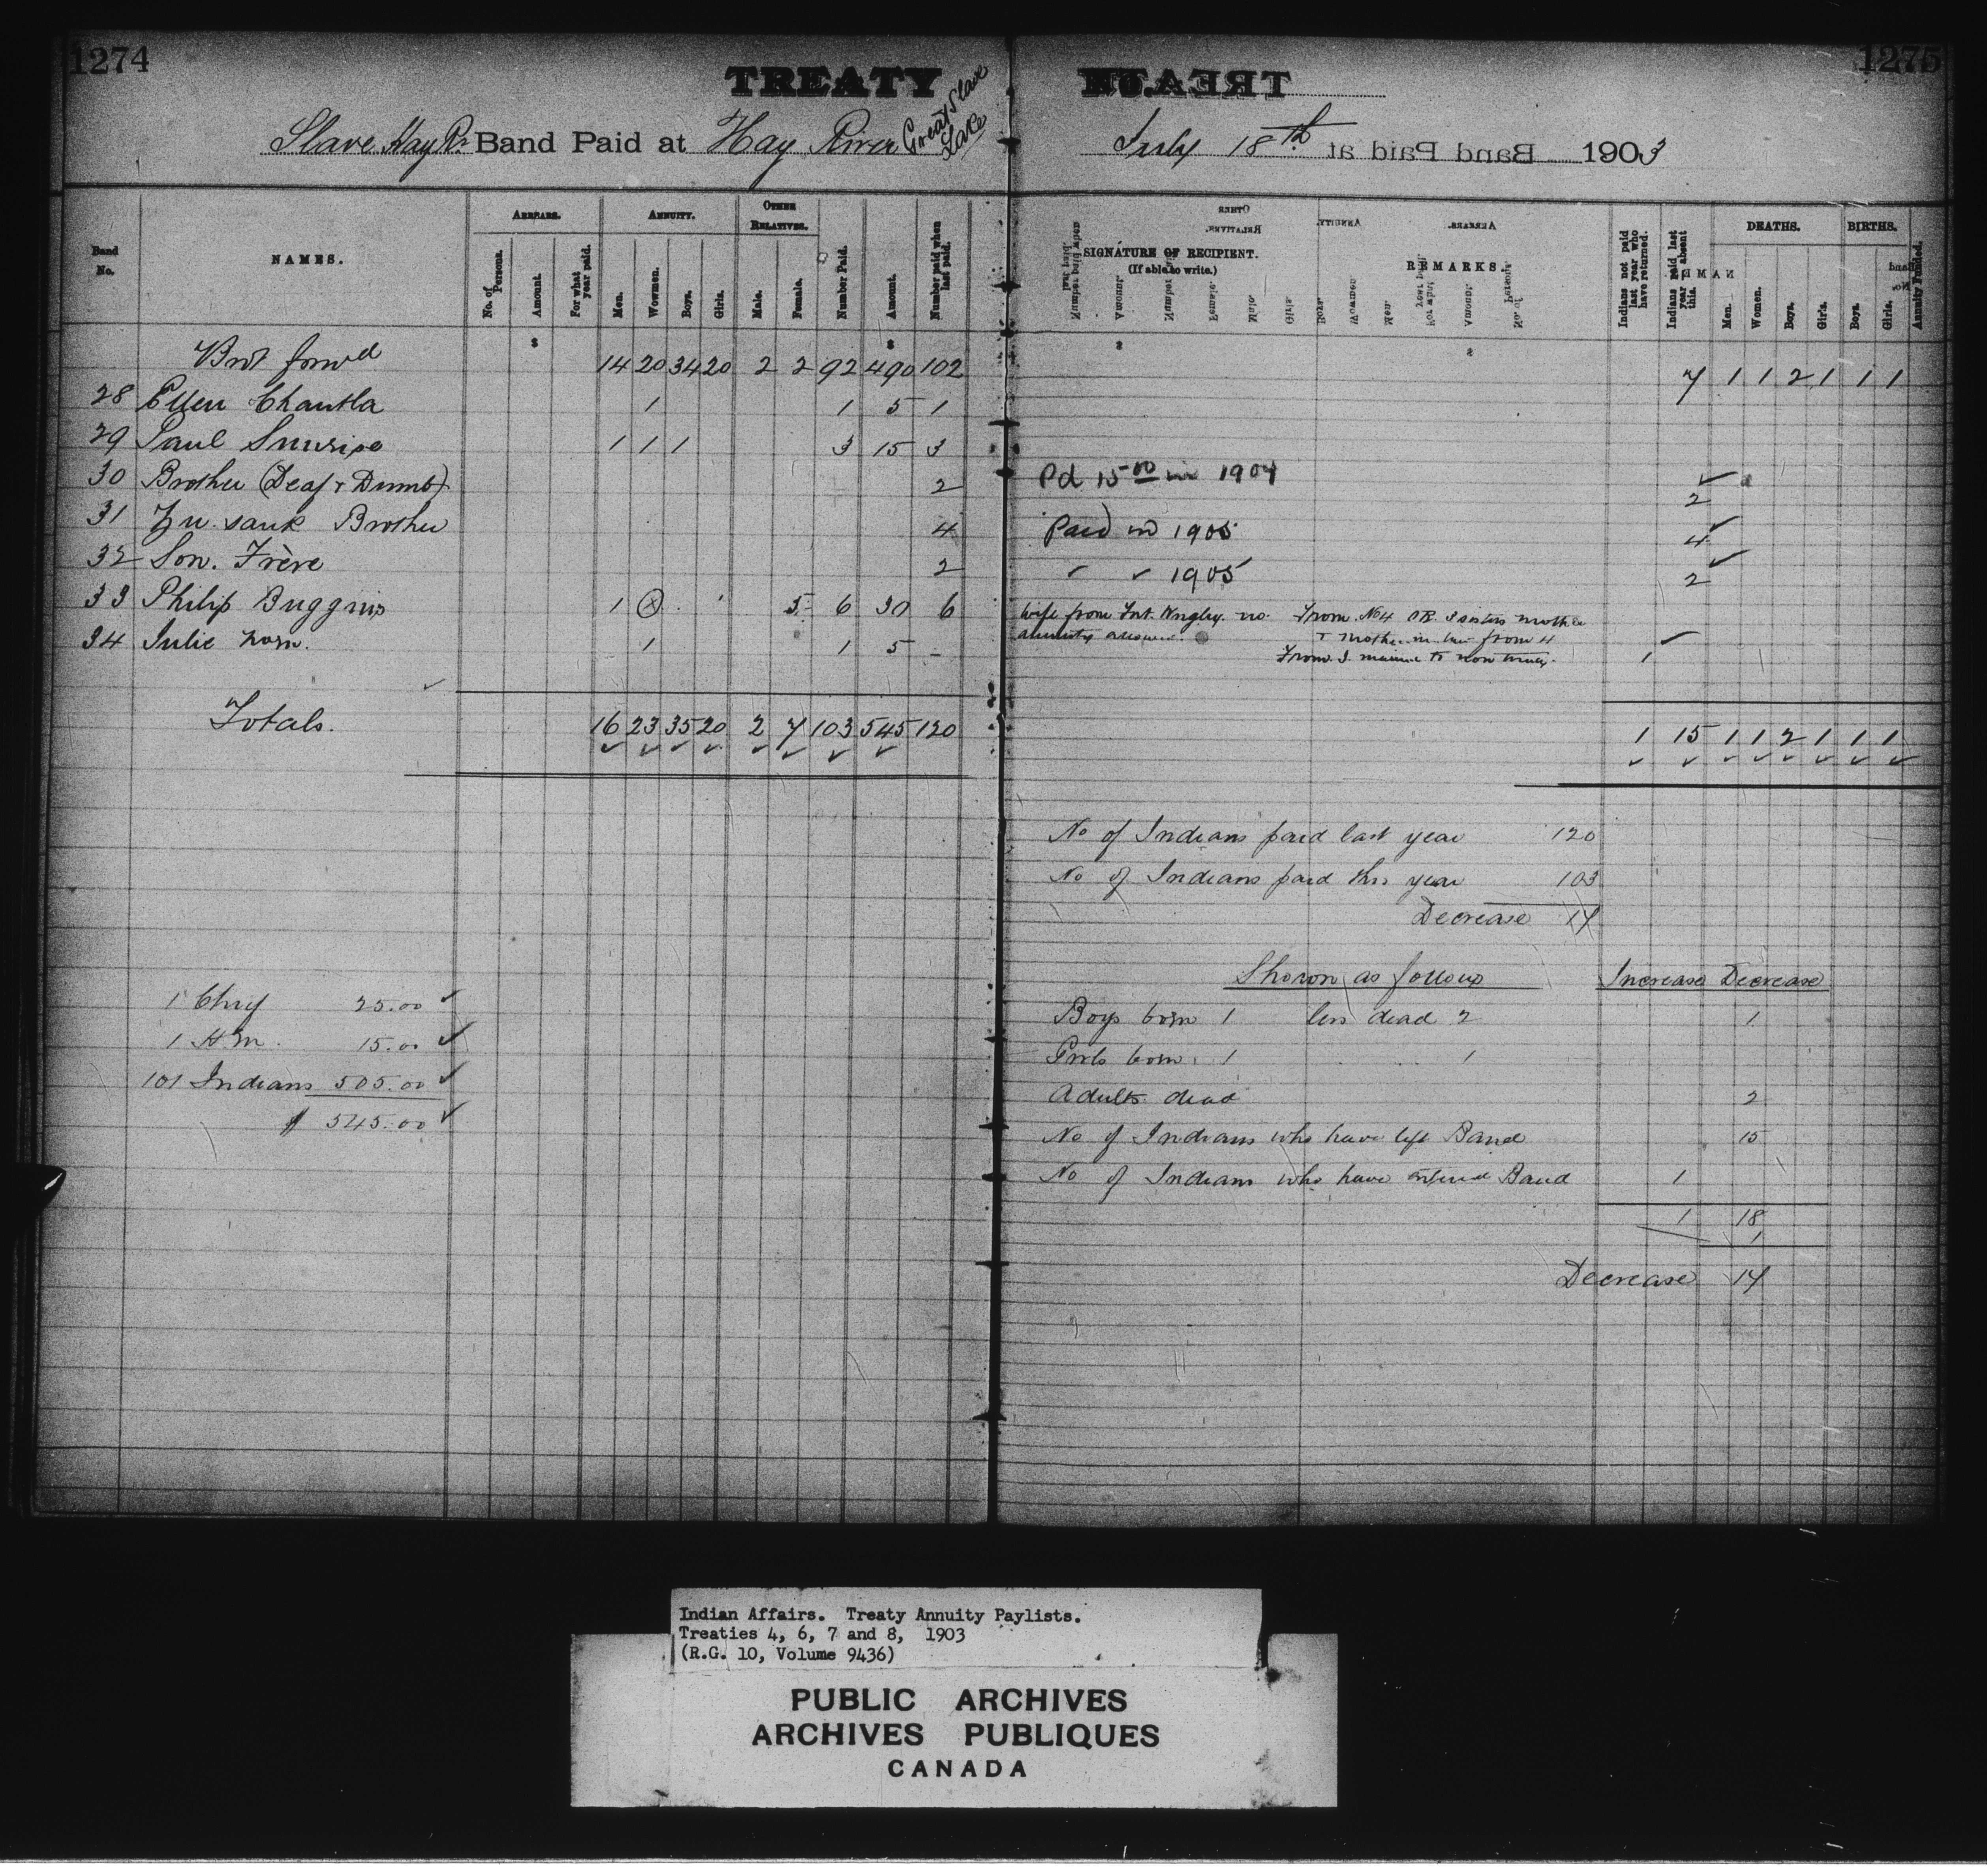 1274
1275
TREATY No.
Slave Hay R. Band Paid at Hay River Great Slave Lake
July 18th 1903
Band No.
NAMES.
ARREARS.
No. of Persons.
Amount.
For what year paid.
ANNUITY.
Men.
Women.
Boys.
Girls.
OTHER RELATIVES.
Male.
Female.
Number Paid.
Amount.
Number paid when last paid.
SIGNATURE OF RECIPIENT.
(If able to write.)
REMARKS.
Indians not paid last year who have returned.
Indians paid last year absent this.
DEATHS.
Men.
Women.
Boys.
Girls.
BIRTHS.
Boys.
Girls.
Annuity Funded.
Brot forwd 14 20 34 20 2 2 92 490 102 7 1 1 2 1 1 1
28 Ellen Chantla 1 1 5 1
29 Paul Sunrise 1 1 1 3 15 3
30 Brother (Deaf & Dumb) 2 Pd 15 00 in 1904 2
31 Brother 4 Paid in 1905 4
32 Son. Frère 2 " " 1905 2
33 Philip Buggins 1 x 5 6 30 6 wife from Fort Wrigley no annuity From No 4 3 sisters mother
& mother in law from 4
34 Julie 1 1 5 - From to non treaty. 1
Totals. 16 23 35 20 2 7 103 545 120 1 15 1 1 2 1 1 1
No of Indians paid last year 120
No of Indians paid this year 103
Decrease 17
Shown as follows Increase Decrease
Boys born 1 less dead 2 1
Girls born 1 1
Adults dead 2
No of Indians who have left Band 15
No of Indians who have entered Band 1
1 18
1
Decrease 17
1 Chief 25.00
1 H.m. 15.00
101 Indians 505.00
$ 545.00
Indian Affairs. Treaty Annuity Paylists.
Treaties 4, 6, 7 and 8, 1903
(R.G. 10, Volume 9436)
PUBLIC ARCHIVES
ARCHIVES PUBLIQUES
CANADA